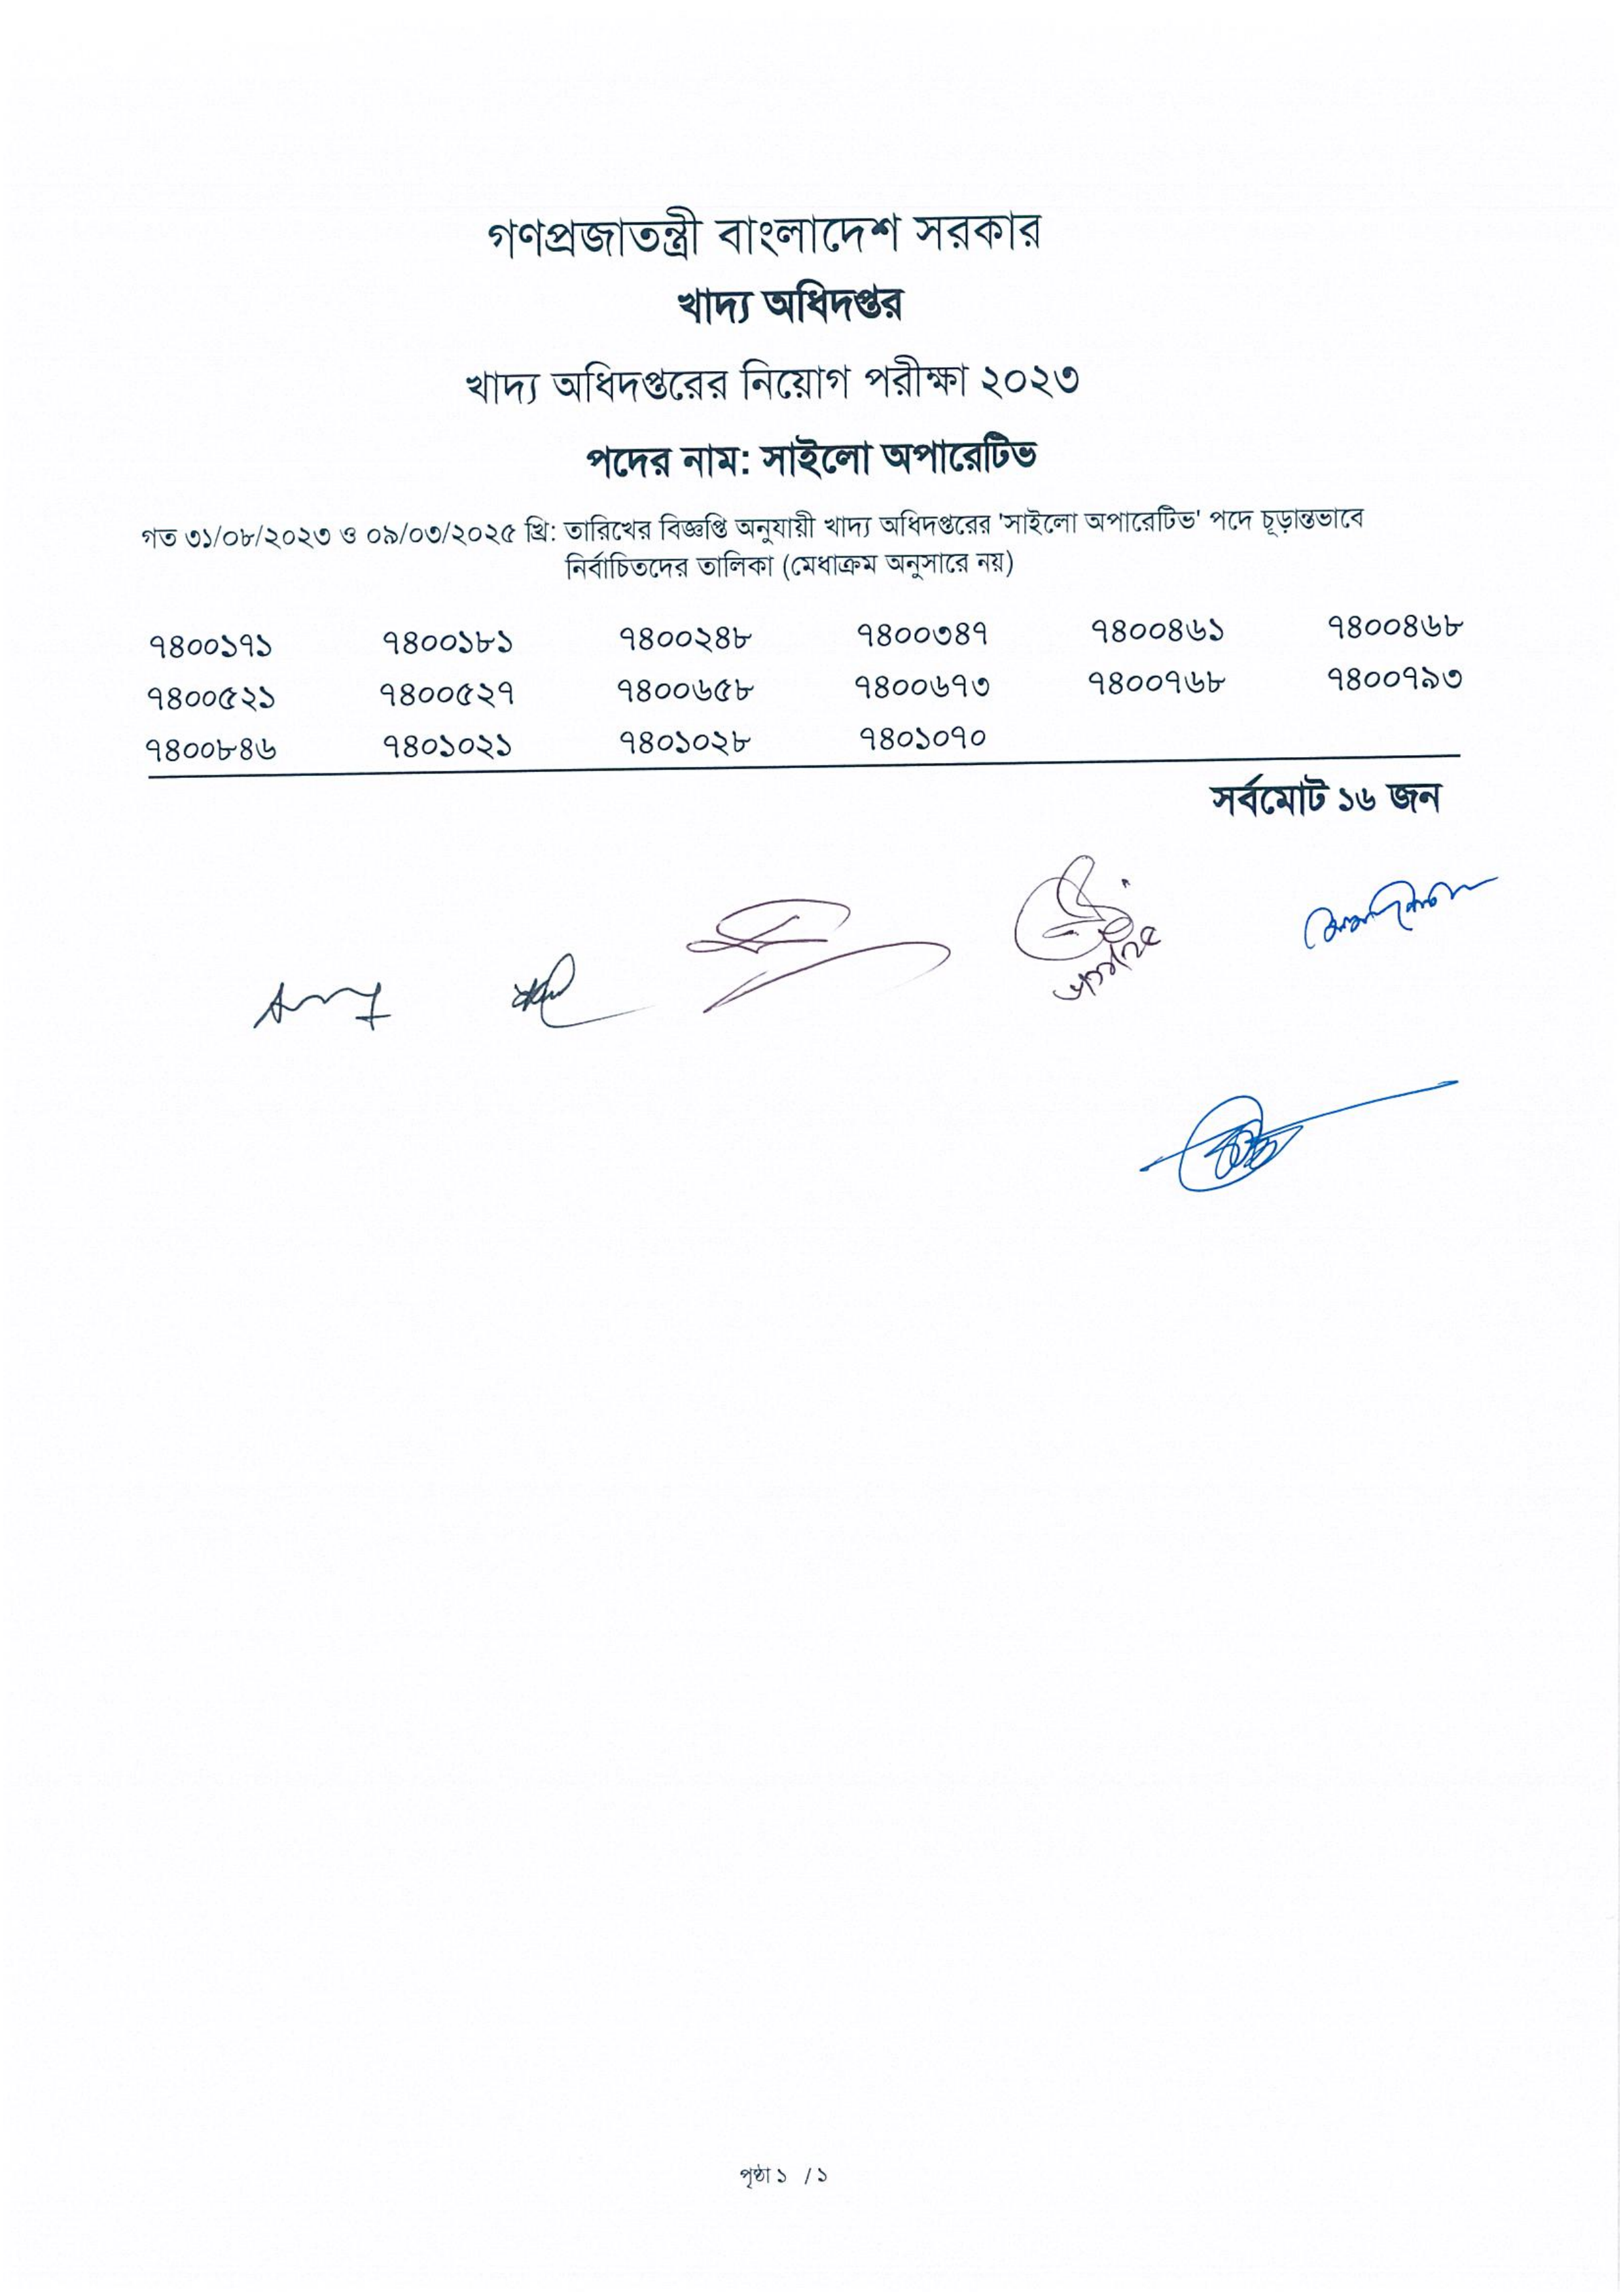 গণপ্রজাতন্ত্রী বাংলাদেশ সরকার
খাদ্য অধিদপ্তর
খাদ্য অধিদপ্তরের নিয়োগ পরীক্ষা ২০২৩
পদের নাম: সাইলো অপারেটিভ
গত ৩১/০৮/২০২৩ ও ০৯/০৩/২০২৫ খ্রি: তারিখের বিজ্ঞপ্তি অনুযায়ী খাদ্য অধিদপ্তরের 'সাইলো অপারেটিভ' পদে চূড়ান্তভাবে
নির্বাচিতদের তালিকা (মেধাক্রম অনুসারে নয়)
৭৪০০১৭১ ৭৪০০১৮১ ৭৪০০২৪৮ ৭৪০০৩৪৭ ৭৪০০৪৬১ ৭৪০০৪৬৮
৭৪০০৫২১ ৭৪০০৫২৭ ৭৪০০৬৫৮ ৭৪০০৬৭৩ ৭৪০০৭৬৮ ৭৪০০৭৯৩
৭৪০০৮৪৬ ৭৪০১০২১ ৭৪০১০২৮ ৭৪০১০৭০
সর্বমোট ১৬ জন
পৃষ্ঠা ১ / ১